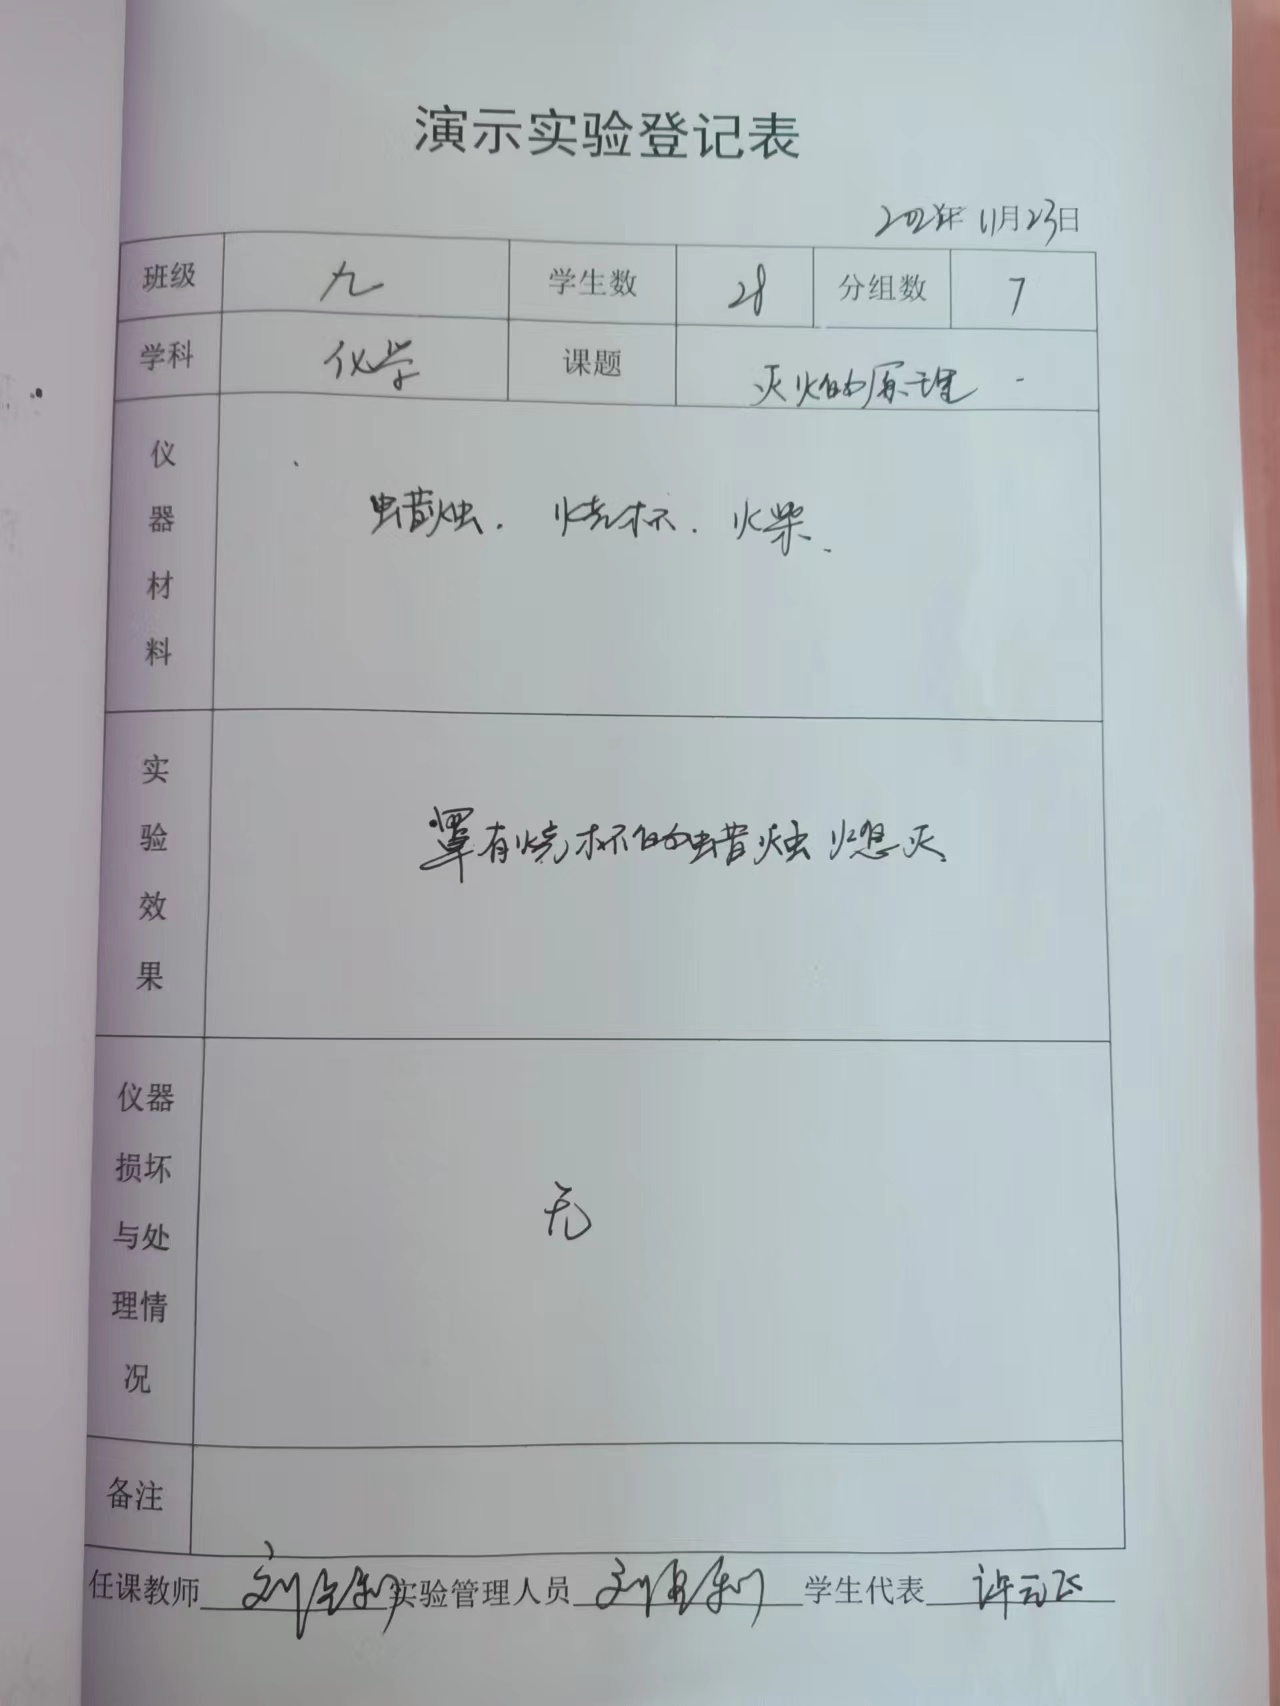 演示实验登记表
年 11月23日
班级 九 学生数 28 分组数 7
学科 化学 课题 灭火的原理
仪器材料 蜡烛. 烧杯. 火柴.
实验效果 罩有烧杯的蜡烛熄灭
仪器损坏与处理情况 无
备注
任课教师 刘 利 实验管理人员 刘 利 学生代表 许元飞